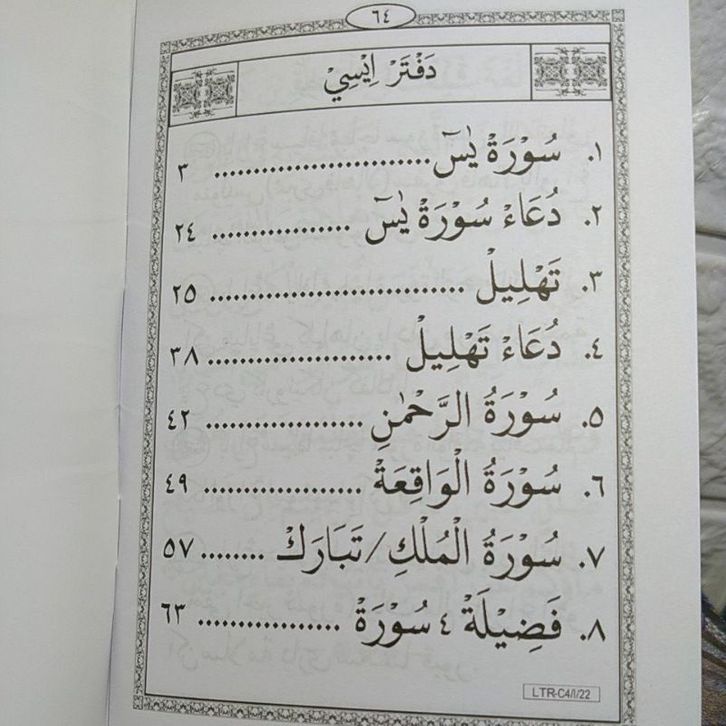 ٦٤
دَفْتَرْ اِيْسِيْ
١. سُوْرَةْ يٰسٓ .............................. ٣
٢. دُعَاءْ سُوْرَةْ يٰسٓ .................. ٢٤
٣. تَهْلِيْلْ ................................ ٢٥
٤. دُعَاءْ تَهْلِيْلْ ........................ ٣٨
٥. سُوْرَةُ الرَّحْمٰنِ ..................... ٤٢
٦. سُوْرَةُ الْوَاقِعَةْ ..................... ٤٩
٧. سُوْرَةُ الْمُلْكِ/تَبَارَكْ ........ ٥٧
٨. فَضِيْلَةْ ٤ سُوْرَةْ .................. ٦٣
LTR-C4/I/22